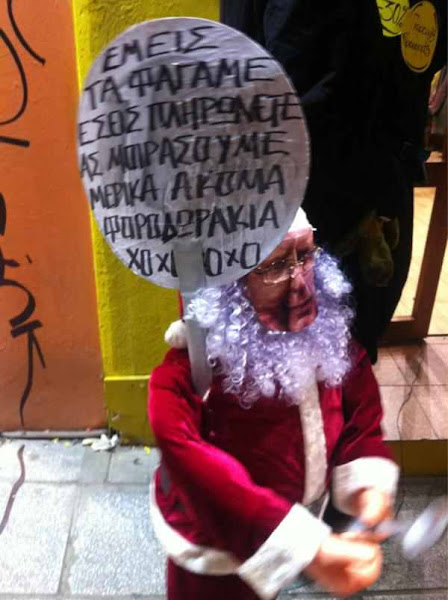 ΕΜΕΙΣ
ΤΑ ΦΑΓΑΜΕ
ΕΣΕΙΣ ΠΛΗΡΩΝΕΤΕ
ΑΣ ΜΟΙΡΑΣΟΥΜΕ
ΜΕΡΙΚΑ ΑΚΟΜΑ
ΦΟΡΟΔΩΡΑΚΙΑ
ΧΟΧΟΧΟΧΟ
30%